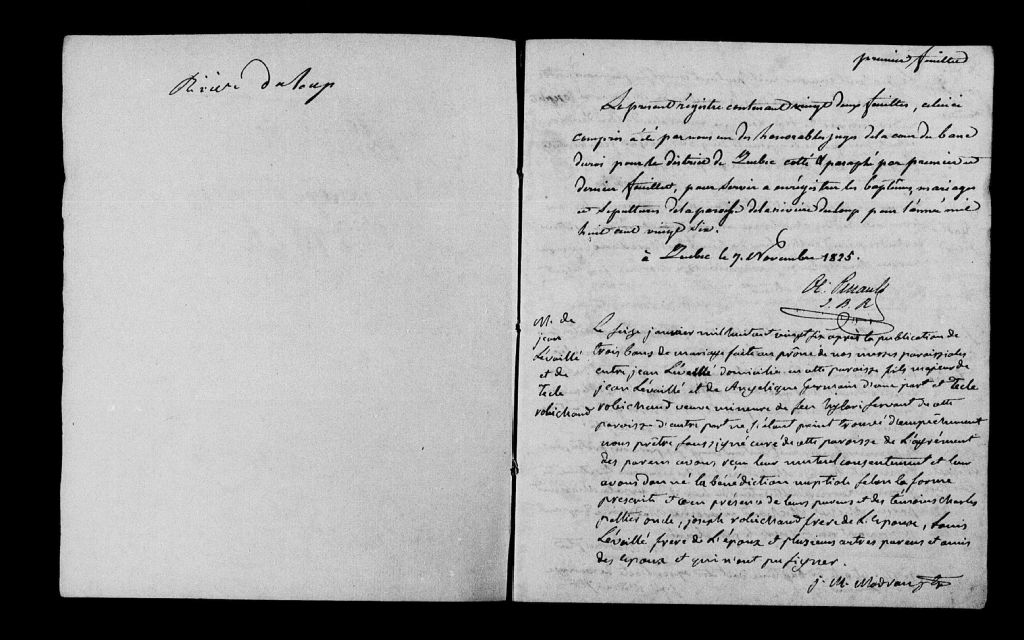 Rivière du loup
premier feuillet
Le present régistre contenant vingt deux feuilles, celui ci
compris a été par nous un des honorables juges de la cour du banc
du roi pour le district de Quebec cotté & paraphé par premier et
dernier feuillet, pour servir a enrégistrer les baptêmes, mariages
et sepultures de la paroisse de la riviere du loup pour l'année mil
huit cent vingt six.
à Quebec le 7. Novembre 1825.
Ol. Perrault
J. B. R.
M. de
jean
Lévaillé
et de
Tecle
robichaud
Le seize janvier mil huit cent vingt six après la publication de
trois bans de mariage faite au prône de nos messes paroissiales
entre jean Lévaillé domicilié en cette paroisse fils majeur de
jean Lévaillé et de Angelique Germain d'une part et Tecle
robichaud veuve mineure de feu servant de cette
paroisse d'autre part ne s'étant point trouvé d'empêchement
nous prêtre soussigné curé de cette paroisse de l'agrément
des parens avons reçu leur mutuel consentement et leur
avons donné la bénédiction nuptiale selon la forme
prescrite et en présence de leurs parens et des témoins Charles
oncle, joseph robichaud frere de l'epouse, Louis
Lévaillé frere de l'époux et plusieurs autres parens et amis
des epoux et qui n'ont pu signer.
j. M. Madran ptre